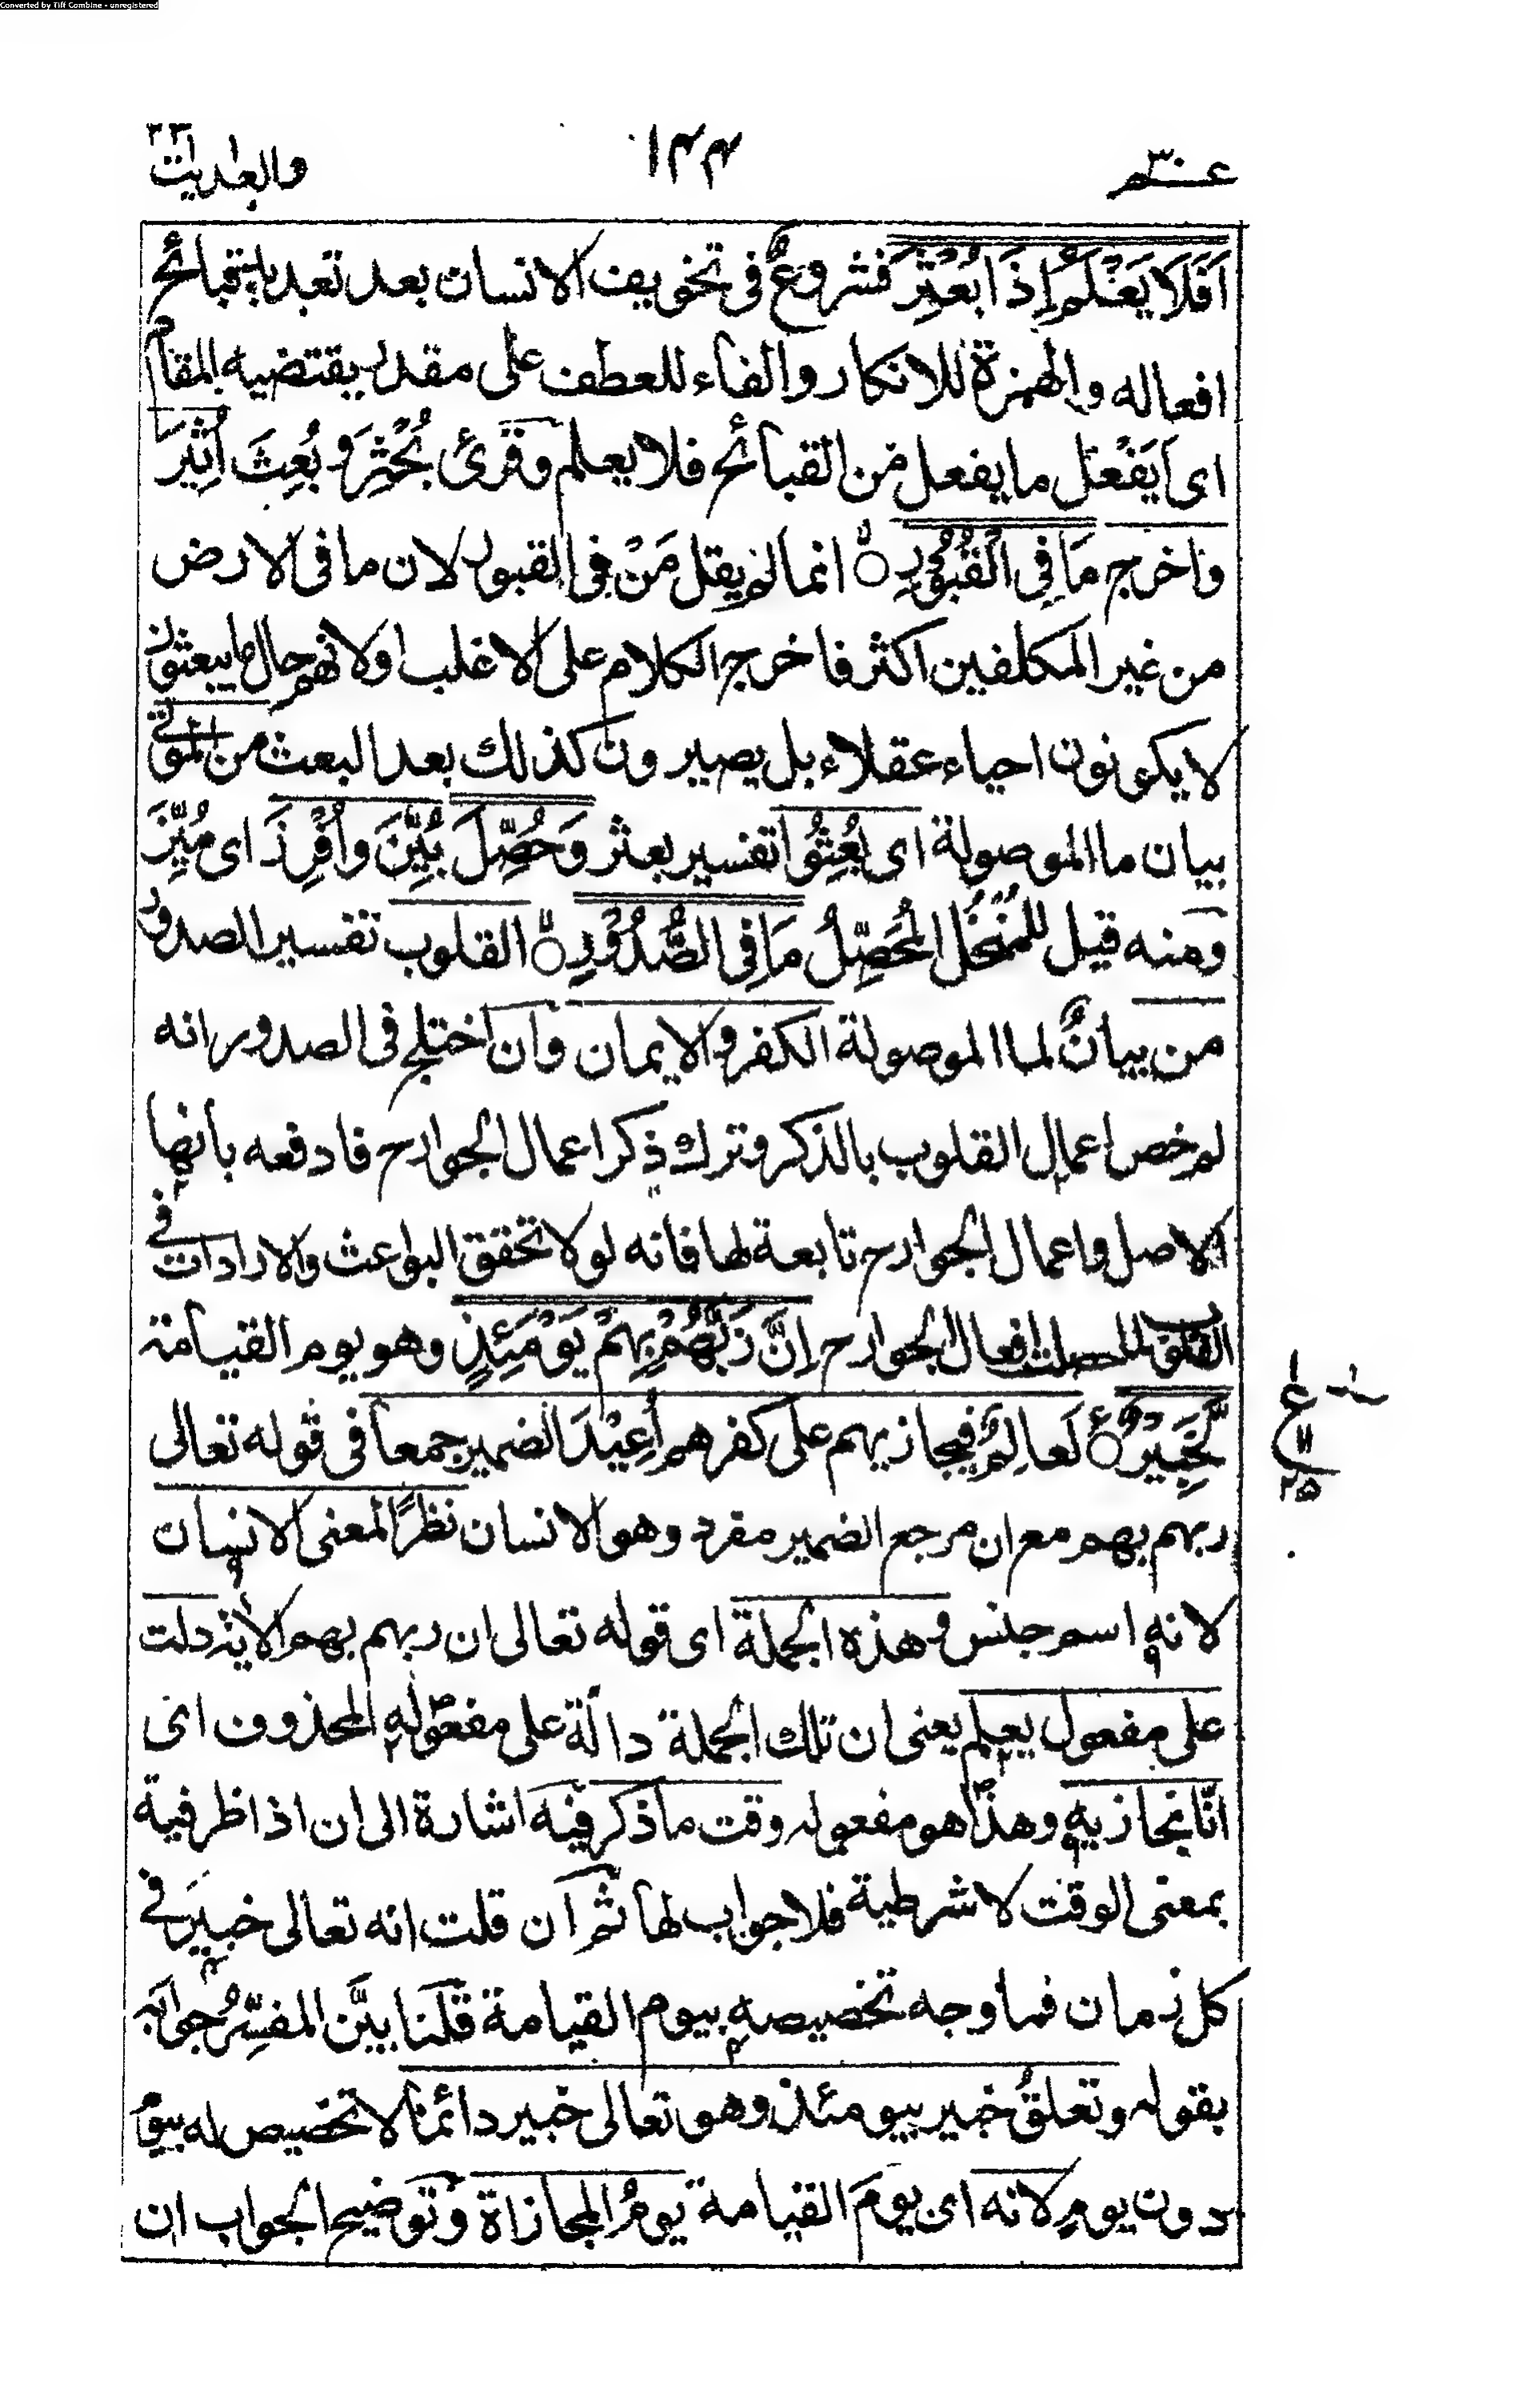 Converted by Tiff Combine - unregistered
عـــم ٣٠
١٣٣
والعٰديٰت
اَفَلَا يَعْلَمُ اِذَا بُعْثِرَ فشروعٌ فى تخويف الانسان بعد تعديد قبائح
افعاله والهمزة للانكار والفاء للعطف على مقدر يقتضيه المقام
اى اَيَفْعَل ما يفعل من القبائح فلا يعلم وقرئ بُحْثِرَ و بُعِثَ اُثِيْرَ
واخرج مَا فِى الْقُبُوْرِ انما لم يقل مَنْ فِى القبور لان ما فى الارض
من غير المكلفين اكثر فاخرج الكلام على الاغلب اولانهم حال ما يبعثون
لا يكونون احياء عقلاء بل يصيرون كذلك بعد البعث من الموتى
بيان ما الموصولة اى بُعِثُوْا تفسير بعثر وَحُصِّلَ بُيِّنَ وَاُفْرِزَ اى مُيِّزَ
ومنه قيل للمُنْخُل المُحَصِّلُ مَا فِى الصُّدُوْرِ القلوب تفسير الصدور
من بيانٌ لما الموصولة الكفر والايمان وان اختلج فى الصدور انه
لم خص اعمال القلوب بالذكر وترك ذكر اعمال الجوارح فادفعه بانها
الاصل واعمال الجوارح تابعة لها فانه لولا تحقق البواعث والارادات فى
القلوب لما حصلت افعال الجوارح اِنَّ رَبَّهُمْ بِهِمْ يَوْمَئِذٍ وهو يوم القيامة
لَّخَبِيْرٌ لَعالِمٌ فيجازيهم على كفرهم اُعِيْدَ الضمير جمعا فى قوله تعالى
ربهم بهم مع ان مرجع الضمير مفرد وهو الانسان نظرًا لمعنى الانسان
لانه اسم جنس وهذه الجملة اى قوله تعالى ان ربهم بهم الاية دلت
على مفعول يعلم يعنى ان تلك الجملة دالة على مفعوله المحذوف اى
انّا نجازيه وهذا هو مفعوله وقت ما ذكر فيه اشارة الى ان اذا ظرفية
بمعنى الوقت لا شرطية فلا جواب لها ثم ان قلت انه تعالى خبير فى
كل زمان فما وجه تخصيصه بيوم القيامة قلنا بيَّن المفسِّرُ جوابه
بقوله وتعلقُ خبير بيومئذ وهو تعالى خبير دائما لا تخصيص له بيوم
دون يوم لانه اى يومَ القيامة يومُ المجازاة وتوضيح الجواب ان
ع
١١
٢٥